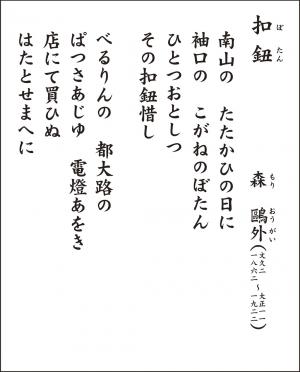 扣鈕 ぼたん
森 鷗外 もり おうがい (文久二 一八六二 ～ 大正一一 一九二二)
南山の たたかひの日に
袖口の こがねのぼたん
ひとつおとしつ
その扣鈕惜し
べるりんの 都大路の
ぱつさあじゆ 電燈あをき
店にて買ひぬ
はたとせまへに